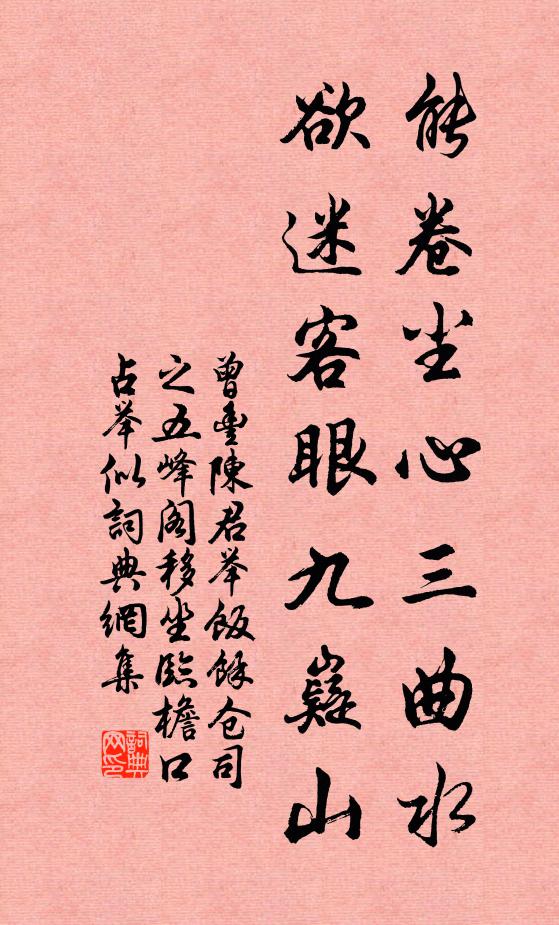 能卷尘心三曲水
欲迷客眼九嶷山
曾豐陳君举飯餘仓司
之五峰阁移坐臨檐口
占举似詞典網集
詞典网印